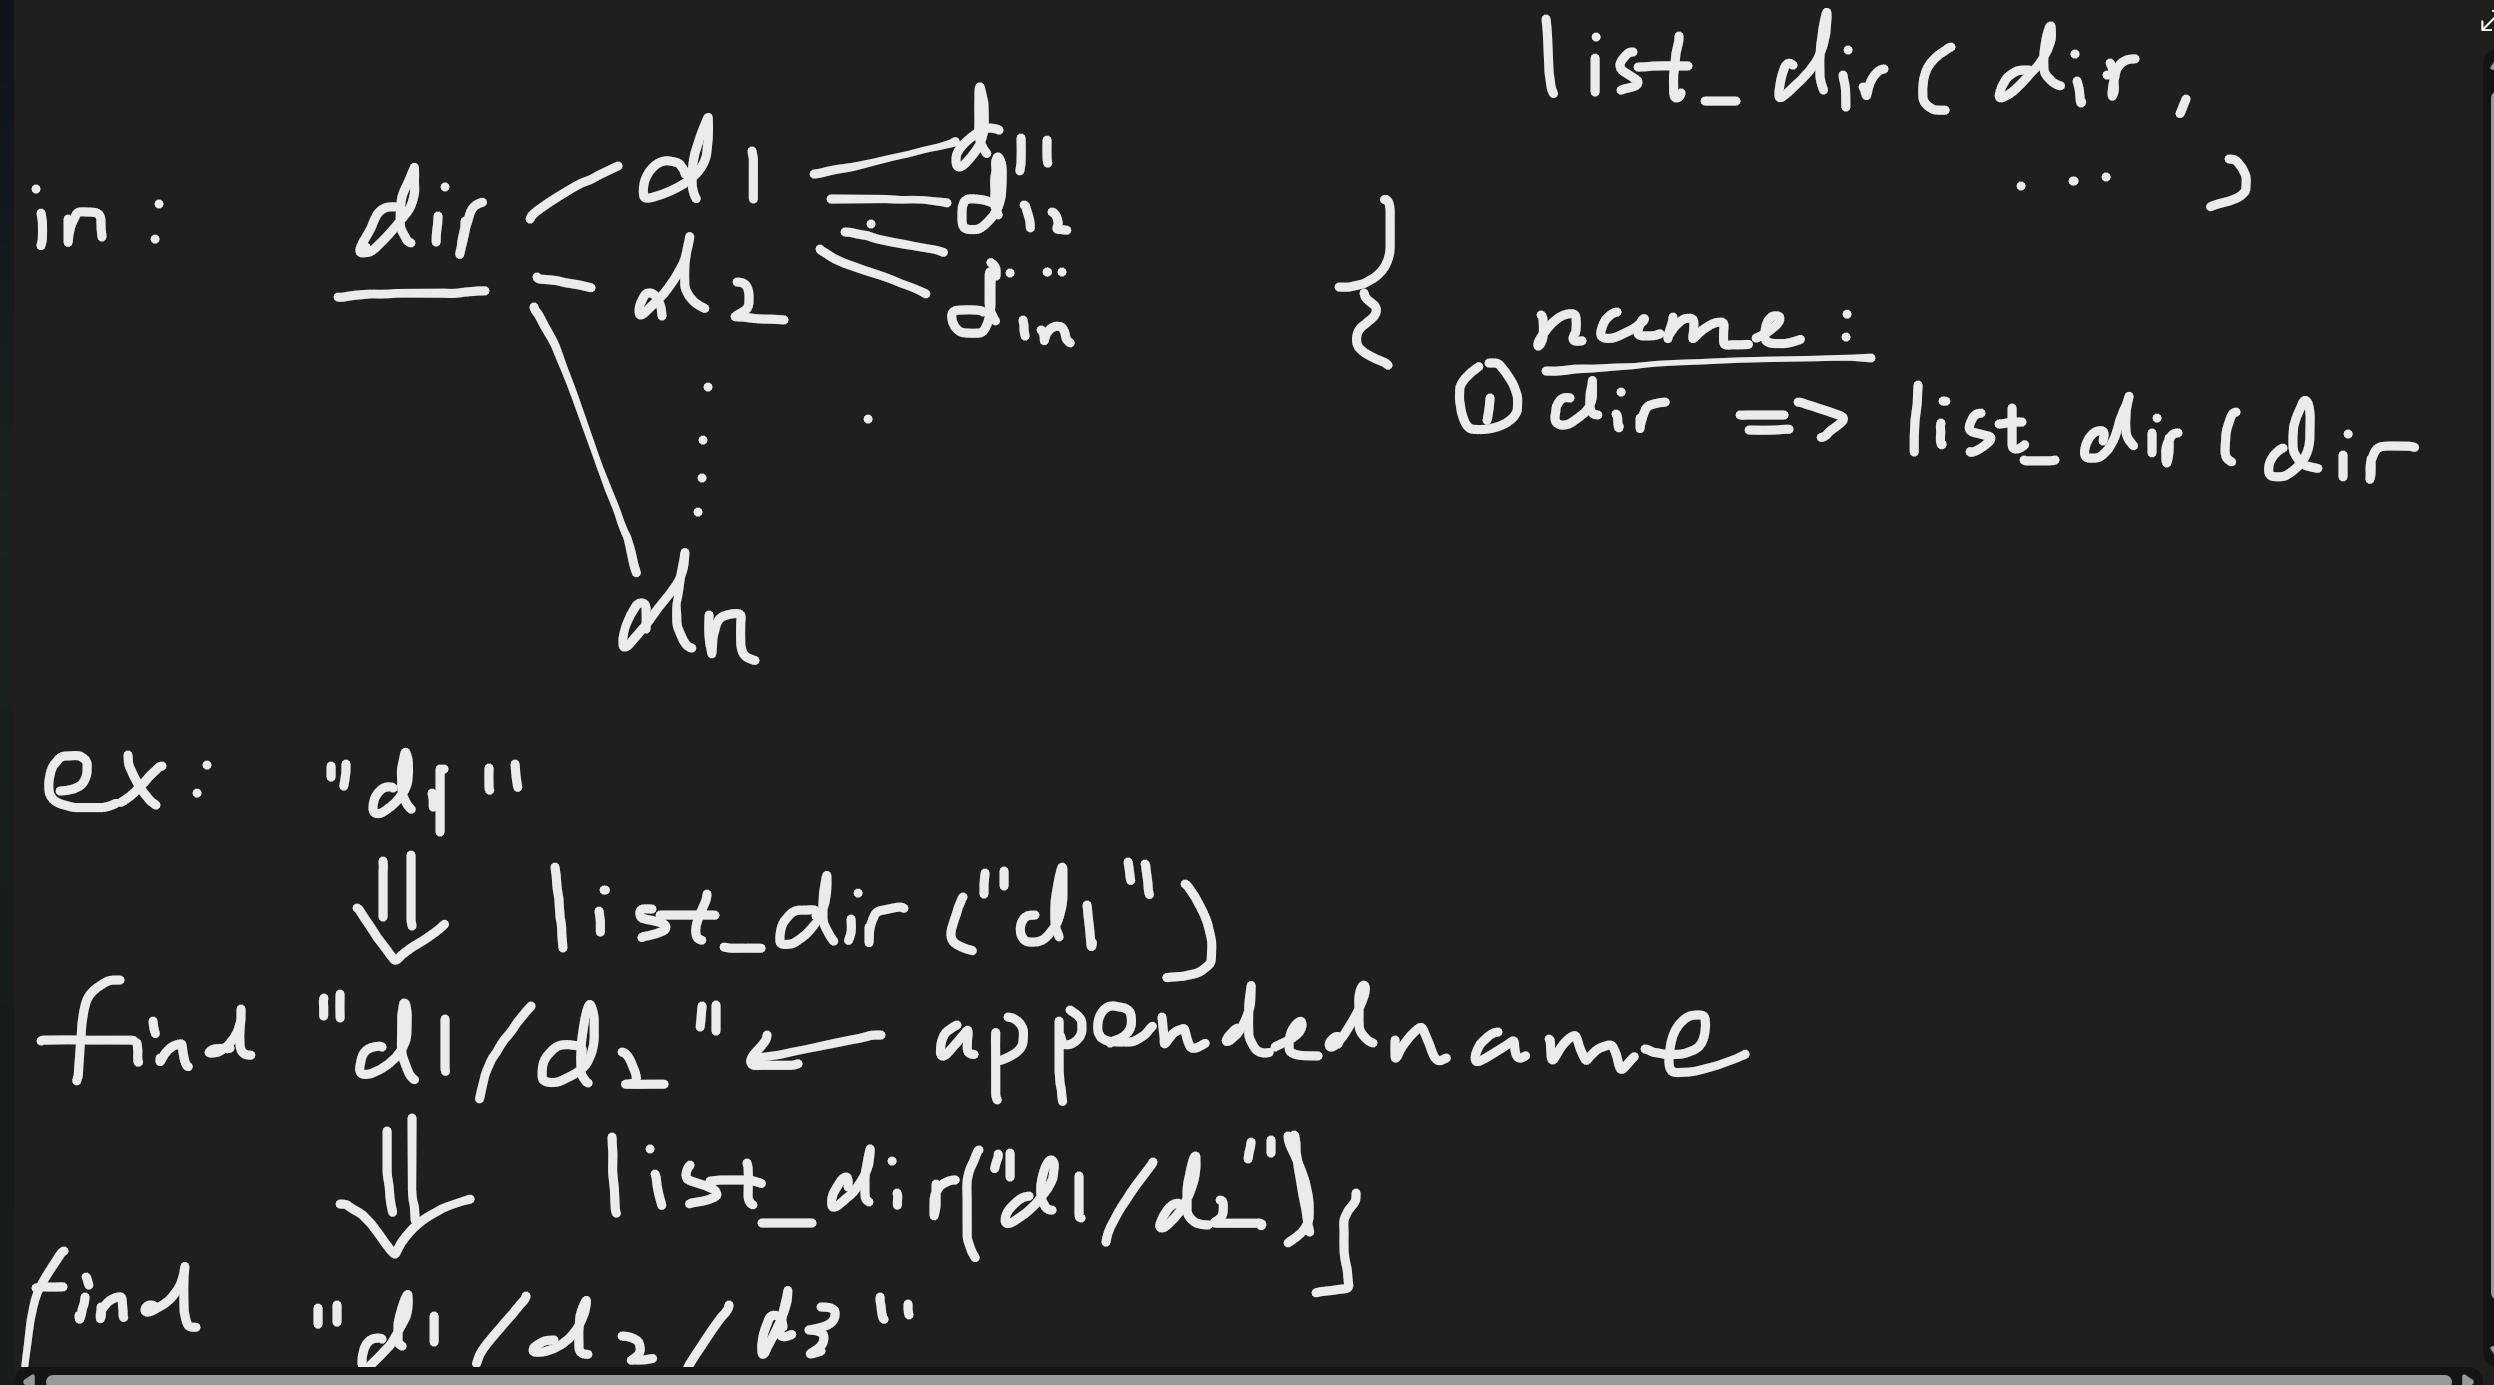 list_dir( dir,
... )
in: dir d1 d11
d12
d2 d1n
dn
} {
name:
① dir => list_dir(dir
ex: "d1"
list_dir("d1")
find "d1/d2" <- appended name
list_dir("d1/d2")
find "d1/d2/d3"